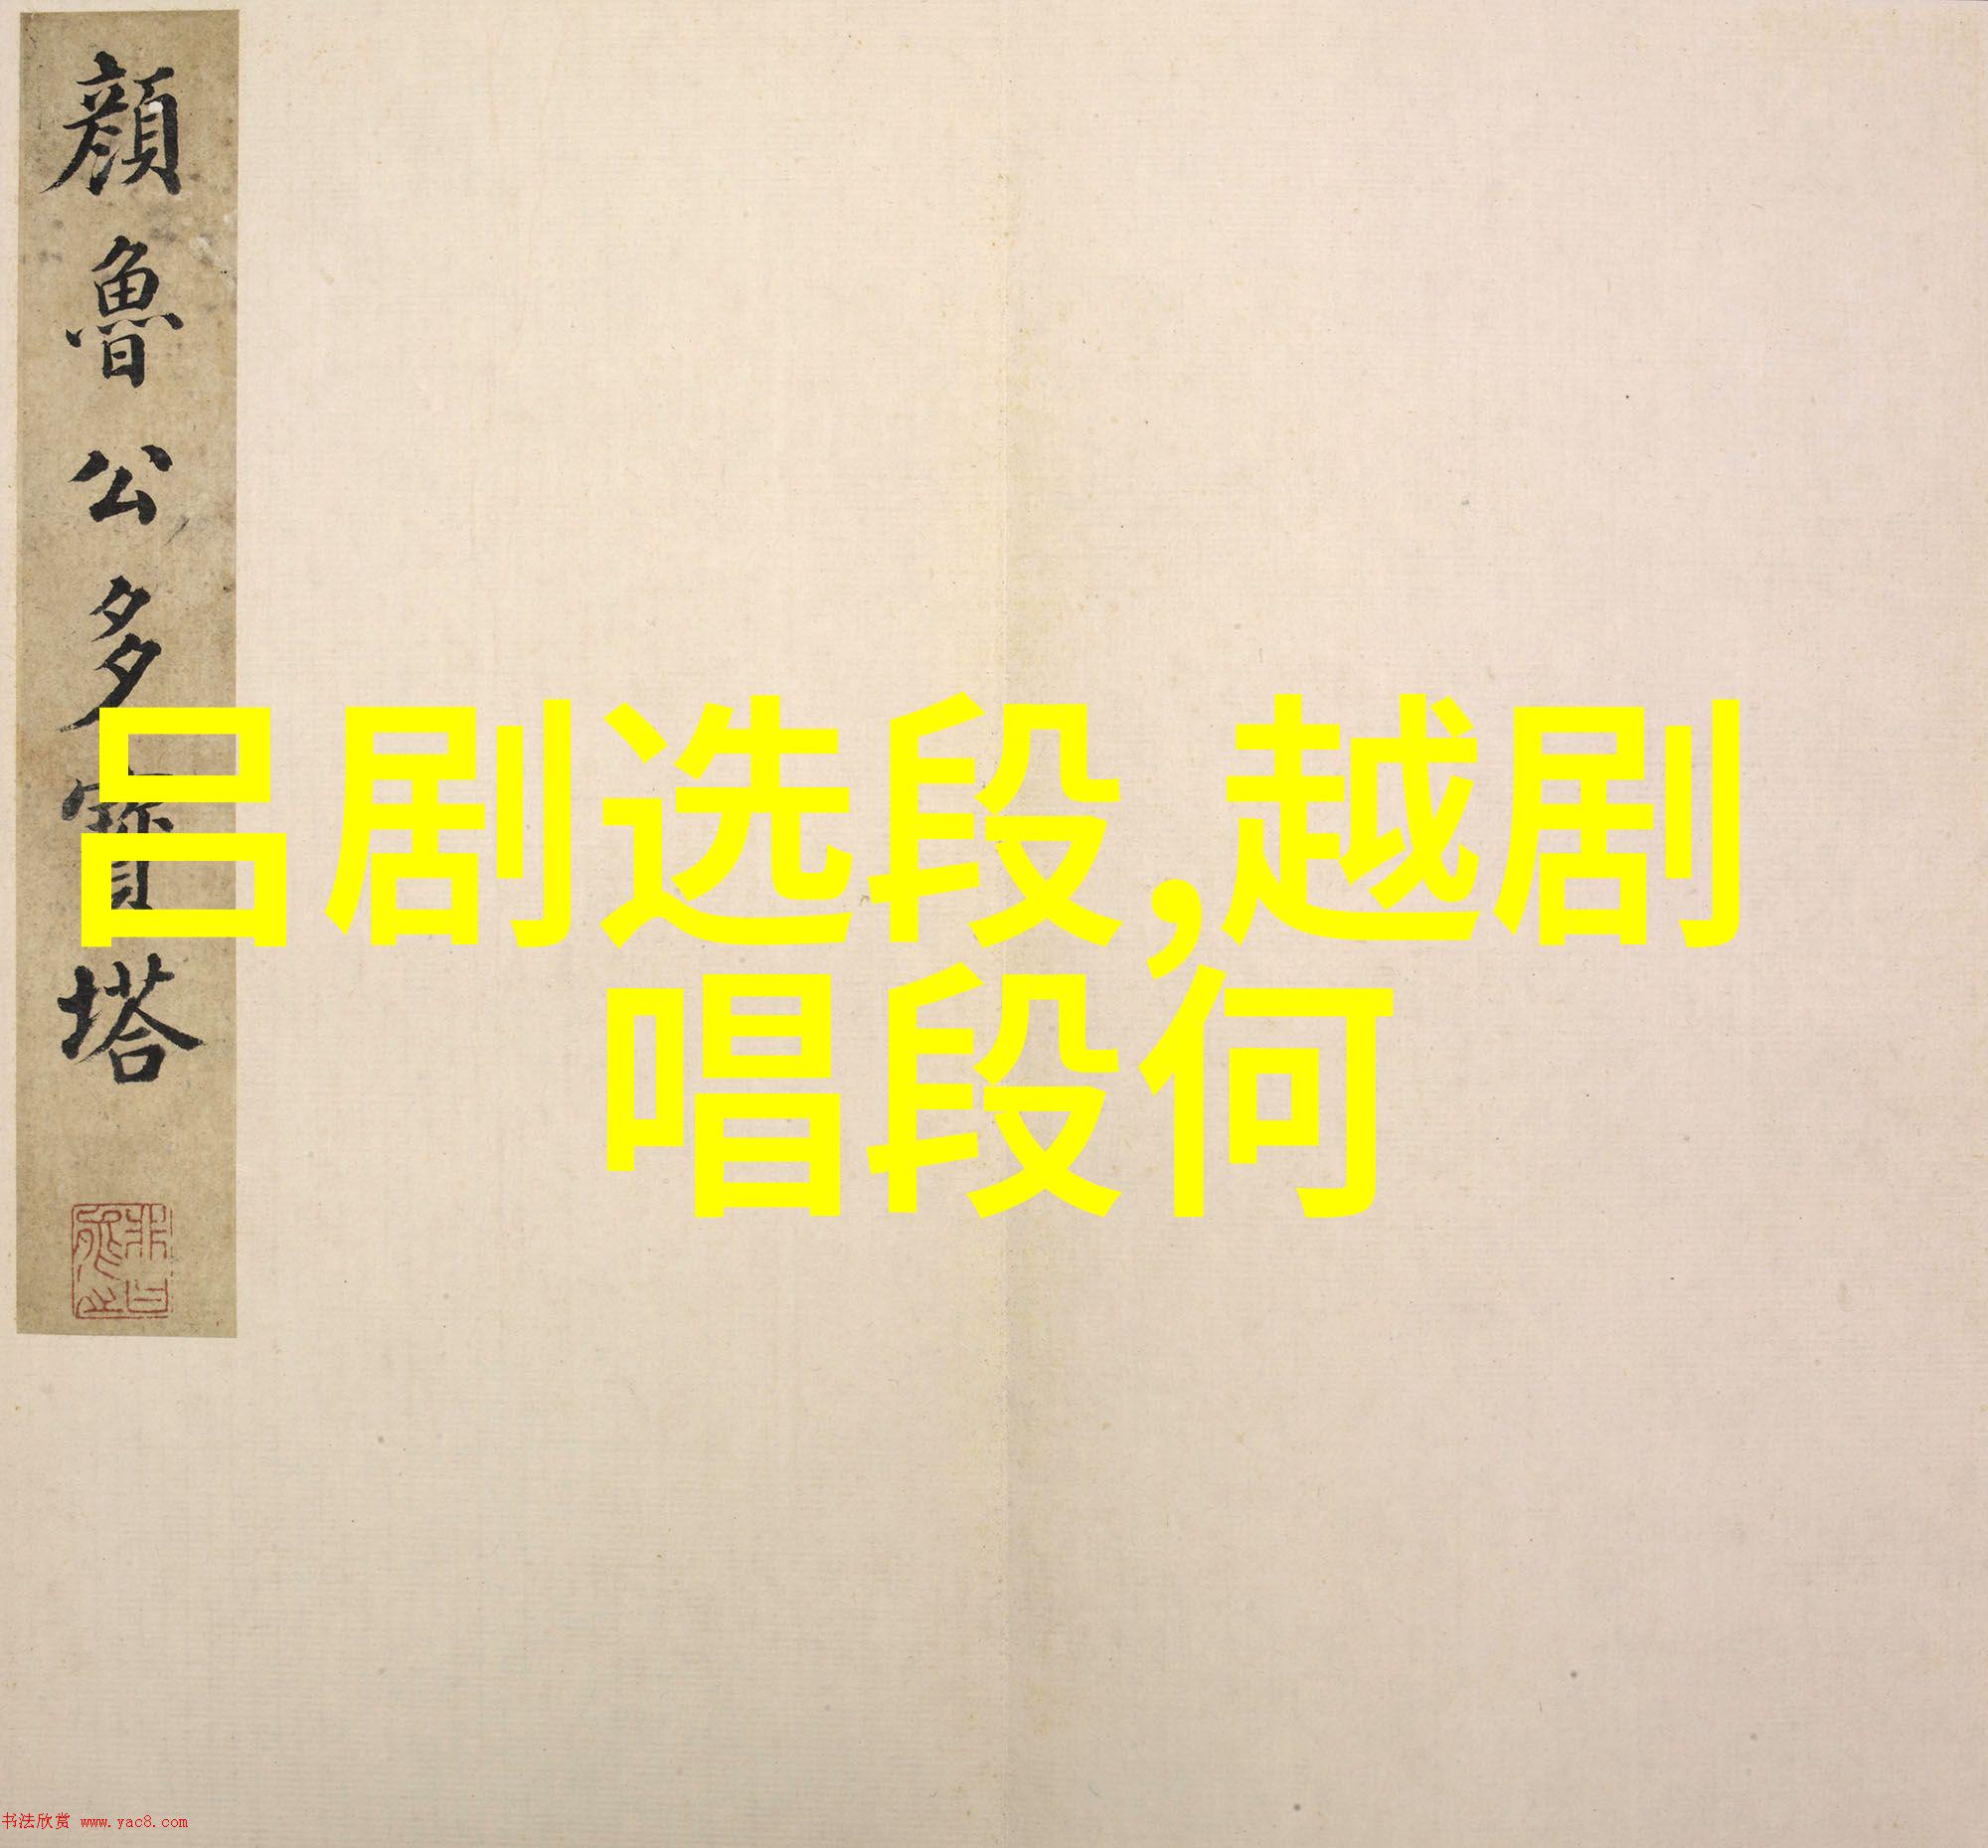 顔魯公多寶塔
吕剧选段,越剧
唱段何
书法欣赏 www.yac8.com